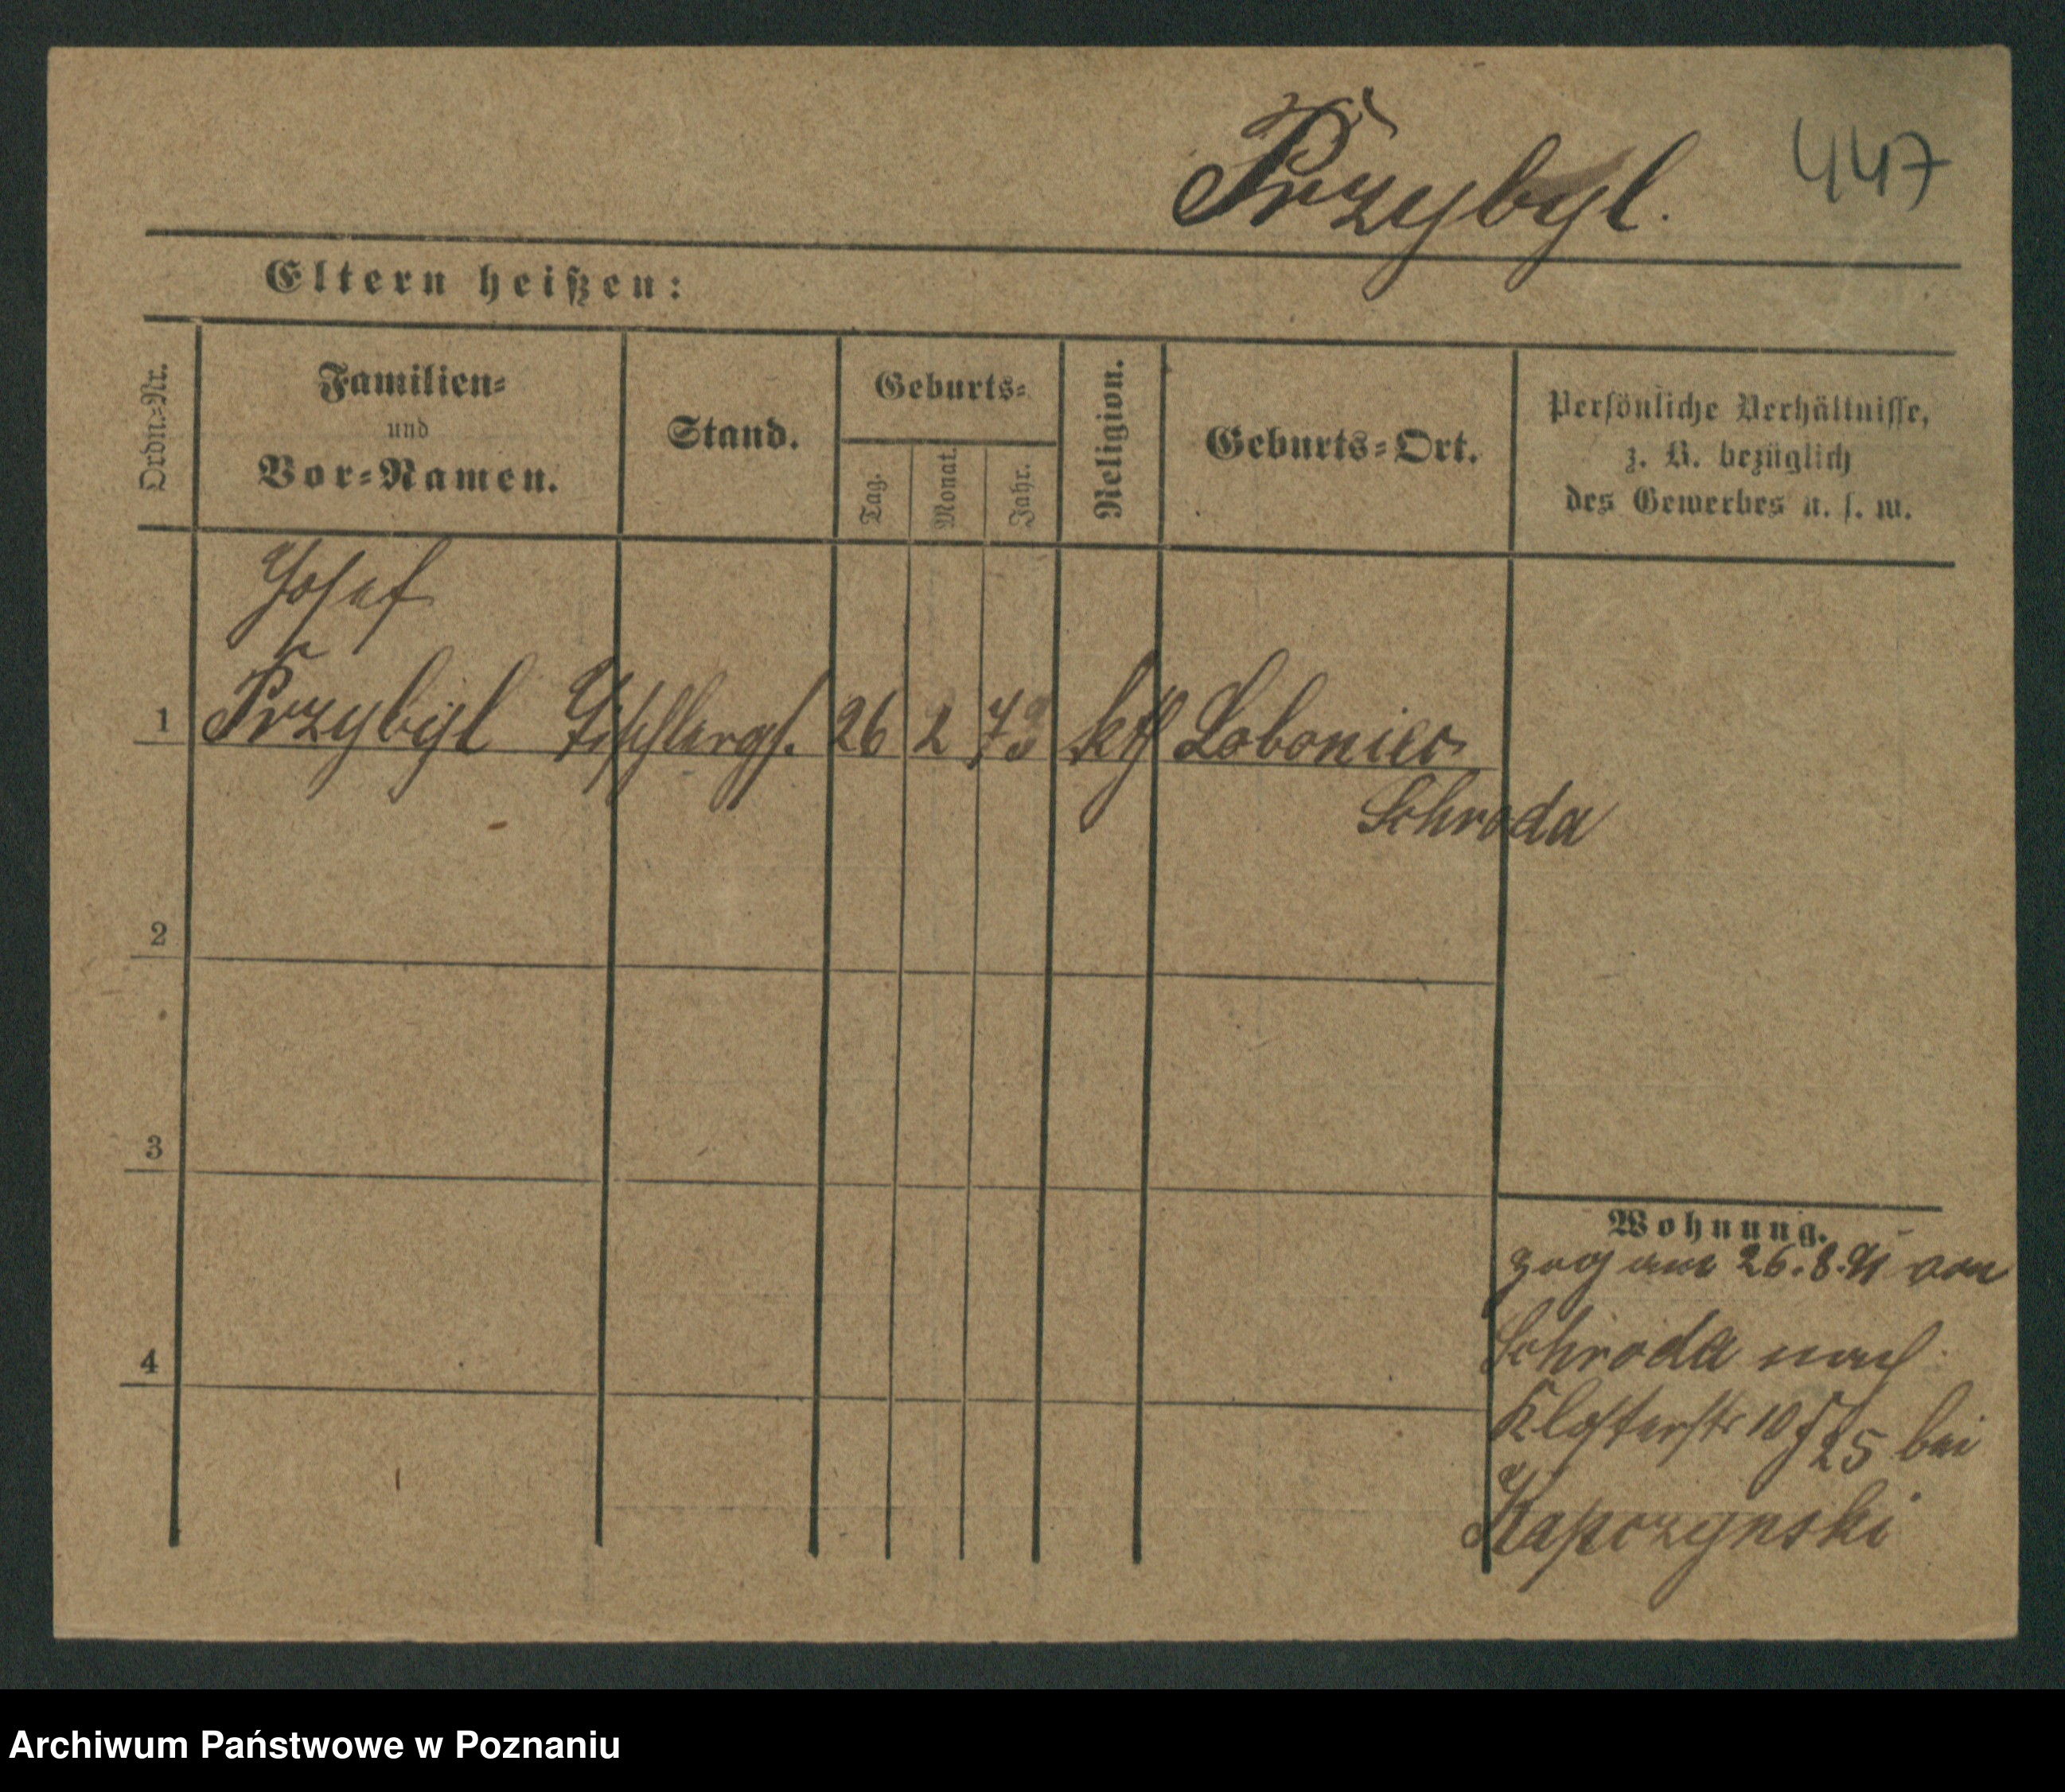 Przybyl.
447
Eltern heißen:
Ordn.=Nr.
Familien=
und
Vor=Namen.
Stand.
Geburts=
Tag.
Monat.
Jahr.
Religion.
Geburts=Ort.
Persönliche Verhältnisse,
z. B. bezüglich
des Gewerbes u. s. w.
Josef
1 Przybyl Tischlergs. 26 2 73 kth Loboniec
Schroda
2
3
4
Wohnung.
zog am 26.8.91 von
Schroda nach
Klosterstr 10/25 bei
Kapczynski
Archiwum Państwowe w Poznaniu